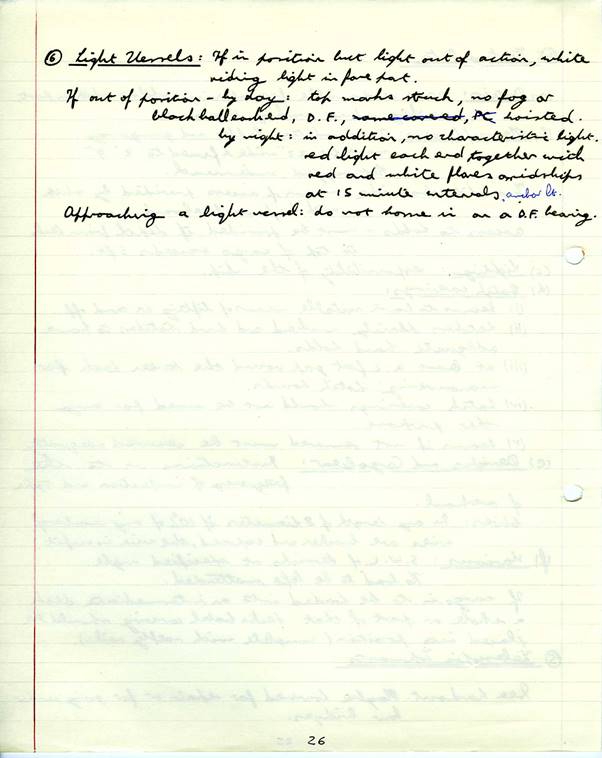 ⑥ Light Vessels: If in position but light out of action, white
riding light in fore part.
If out of position - by day: top marks struck, no fog or
black ball each end, D.F., PC hoisted.
by night: in addition, no characteristic light.
red light each end together with
red and white flares amidships
at 15 minute intervals, anchor lt.
Approaching a light vessel: do not home in on a D.F. bearing.
26